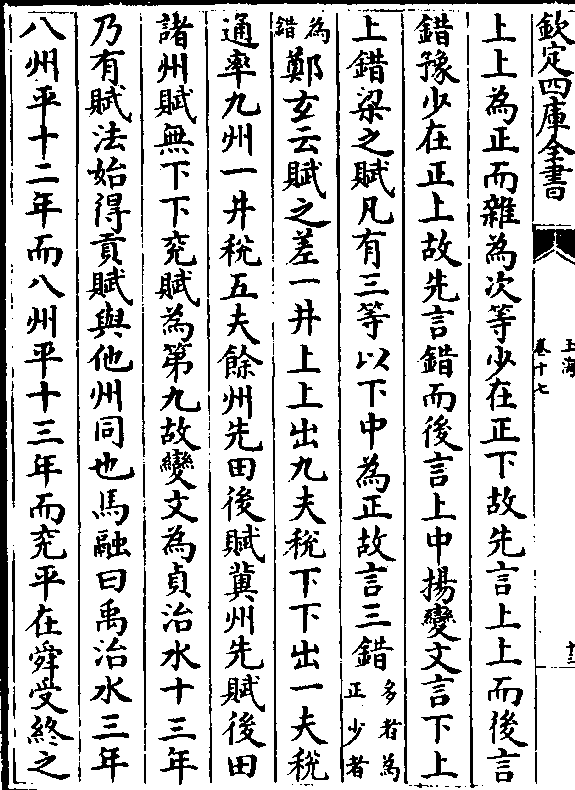 欽定四庫全書
玉海
卷十七
上上為正而雜為次等少在正下故先言上上而後言
錯豫少在正上故先言錯而後言上中揚變文言下上
上錯梁之賦凡有三等以下中為正故言三錯多者為正少者
為錯鄭玄云賦之差一井上上出九夫稅下下出一夫稅
通率九州一井稅五夫餘州先田後賦冀州先賦後田
諸州賦無下下兖賦為第九故變文為貞治水十三年
乃有賦法始得貢賦與他州同也馬融曰禹治水三年
八州平十二年而八州平十三年而兖平在舜受終之